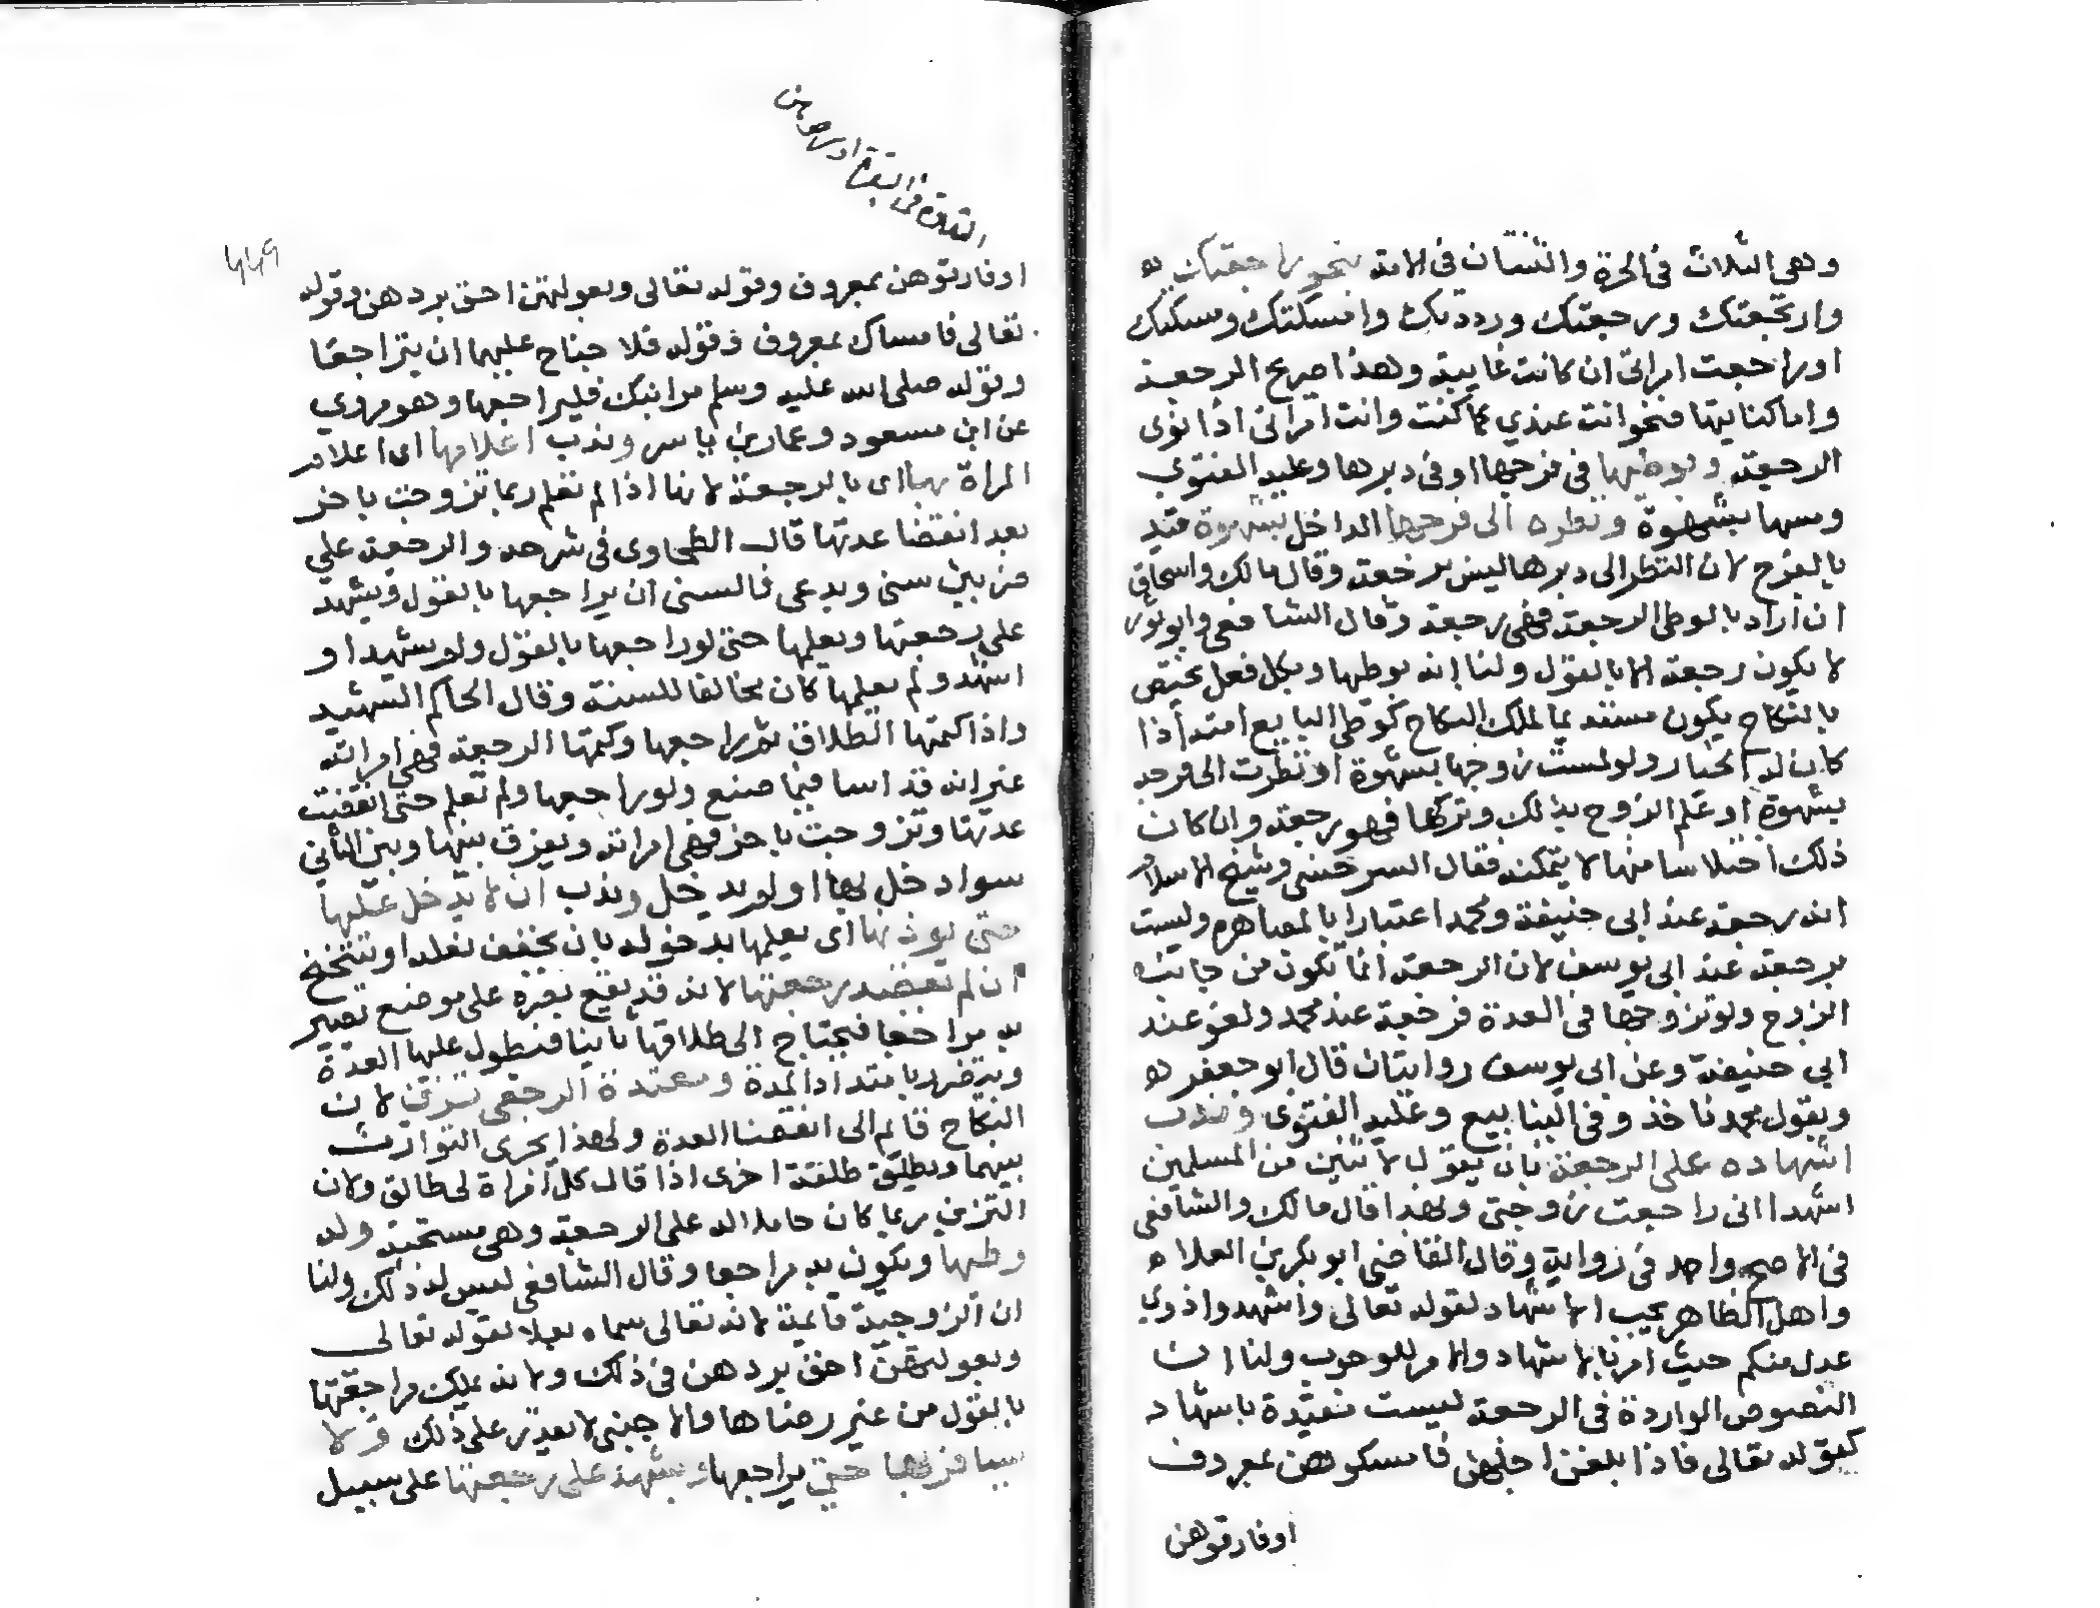 وهي الثلاث في الحرة والثنتان في الامة بنحو راجعتك
وارتجعتك ورجعتك ورددتك وامسكتك ومسكتك
او راجعت امراتي ان كانت غايبة وهذا صريح الرجعة
واما كنايتها فنحو انت عندي كما كنت وانت امراتي اذا نوى
الرجعة وبوطيها في فرجها او في دبرها وعليه الفتوى
ومسها بشهوة ونظره الى فرجها الداخل بشهوة قيد
بالفرج لان النظر الى دبرها ليس برجعة وقال مالك واسحاق
ان اراد بالوطي الرجعة فهي رجعة وقال الشافعي وابو ثور
لا يكون رجعة الا بالقول ولنا انه بوطيها وبكل فعل يختص
بالنكاح يكون مستند يما لملك النكاح كوطي البايع امته اذا
كان له الخيار ولو لمست زوجها بشهوة او نظرت الى فرجه
بشهوة او علم الزوج بذلك وتركها فهو رجعة وان كان
ذلك اختلاسا منها لا يتمكنه فقال السرخسي وشيخ الاسلام
انه رجعة عند ابي حنيفة ومحمد اعتبارا بالمصاهرة وليست
برجعة عند ابي يوسف لان الرجعة انما تكون من جانب
الزوج ولو تزوجها في العدة فرجعة عند محمد ولغو عند
ابي حنيفة وعن ابي يوسف روايتان قال ابو جعفر
وبقول محمد ناخذ وفي الينابيع وعليه الفتوى وندب
اشهاده على الرجعة بان يقول لاثنين من المسلمين
اشهدا اني راجعت زوجتي ولهذا قال مالك والشافعي
في الاصح واحمد في رواية وقال القاضي ابو بكر بن العلاء
واهل الظاهر يجب الاشهاد لقوله تعالى واشهدوا ذوي
عدل منكم حيث امرنا بالاشهاد والامر للوجوب ولنا ان
النصوص الواردة في الرجعة ليست مقيدة باشهاد
كقوله تعالى فاذا بلغن اجلهن فامسكوهن بمعروف
او فارقوهن
التلاوة في البقرة او سرحوهن
٤٤٩
او فارقوهن بمعروف وقوله تعالى وبعولتهن احق بردهن وقوله
تعالى فامساك بمعروف وقوله فلا جناح عليهما ان يتراجعا
وقوله صلى الله عليه وسلم مر ابنك فليراجعها وهو مروي
عن ابن مسعود وعمار بن ياسر وندب اعلامها اى اعلام
المراة بها اى بالرجعة لانها اذا لم تعلم ربما تزوجت باخر
بعد انقضا عدتها قال الطحاوى في شرحه والرجعة على
ضربين سني وبدعي فالسنى ان يراجعها بالقول ويشهد
على رجعتها ويعلمها حتى لو راجعها بالقول ولم يشهد او
اشهد ولم يعلمها كان مخالفا للسنة وقال الحاكم الشهيد
واذا كتمها الطلاق ثم راجعها وكتمها الرجعة فهي امراته
غير انه قد اسا فيما صنع ولو راجعها ولم تعلم حتى انقضت
عدتها وتزوجت باخر فهي امراته ويفرق بينها وبين الثاني
سوا دخل بها او لم يدخل وندب ان لا يدخل عليها
حتى يوذنها اى يعلمها بدخوله بان يخفف نعله او يتنحنح
ان لم يقصد رجعتها لانه قد يقع بصره على موضع يصير
به مراجعا فيحتاج الى طلاقها ثانيا فتطول عليها العدة
وتتضرر بامتداد المدة ومعتدة الرجعي تتزين لان
النكاح قايم الى انقضا العدة ولهذا يجرى التوارث
بينهما وتطلق طلقة اخرى اذا قال كل امراة لي طالق ولان
التزين ربما كان حاملا له على الرجعة وهي مستحبة وله
وطيها ويكون به مراجعا وقال الشافعي ليس له ذلك ولنا
ان الزوجية قايمة لانه تعالى سماه بعلا بقوله تعالى
وبعولتهن احق بردهن في ذلك ولانه يملك مراجعتها
بالقول من غير رضاها والاجنبي لا يقدر على ذلك ولا
يسافر بها حتى يراجعها ويشهد على رجعتها على سبيل